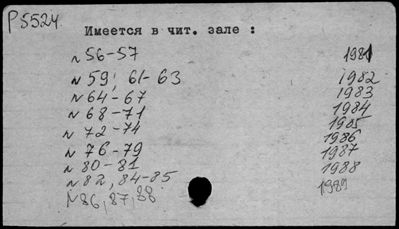 P5524
Имеется в чит. зале :
N 56-57 1981
N 59, 61-63 1982
N 64-67 1983
N 68-71 1984
N 72-74 1985
N 76-79 1986
N 80-81 1987
N 82, 84-85 1988
N 86, 87, 88 1989